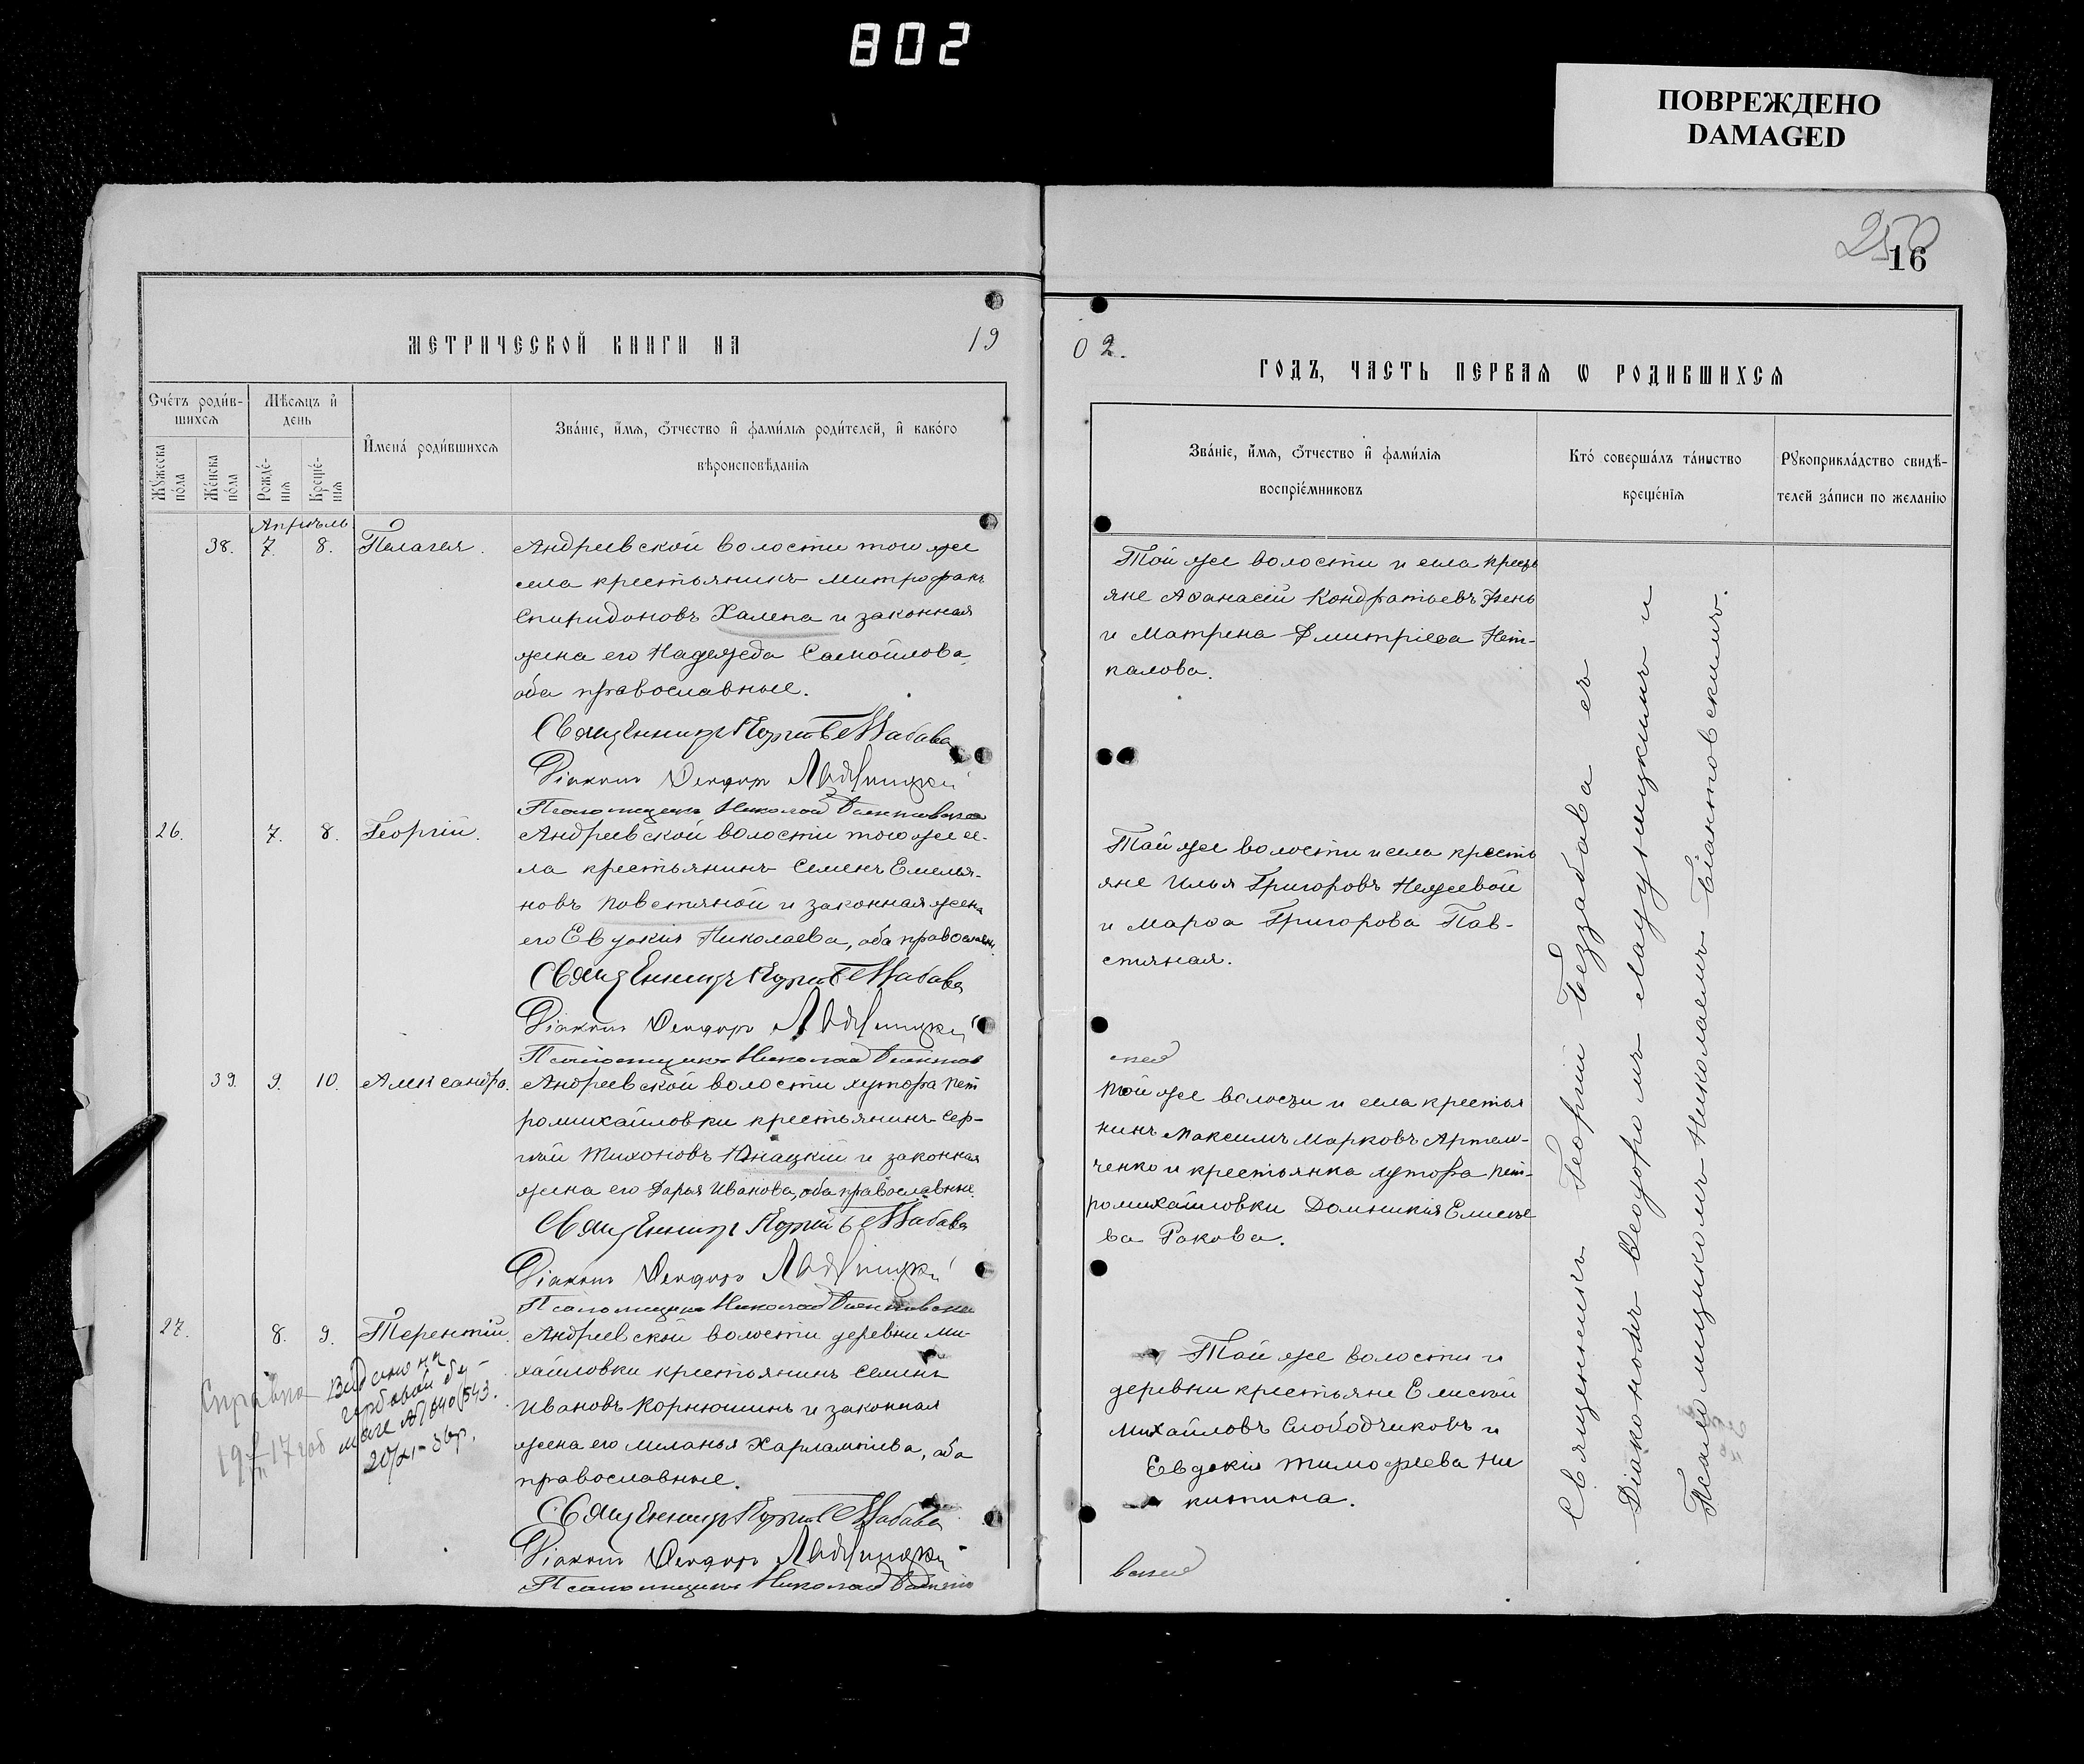 802
ПОВРЕЖДЕНО
DAMAGED
16
МЕТРИЧЕСКОЙ КНИГИ НА 19
02.
ГОДЪ, ЧАСТЬ ПЕРВАЯ Ѡ РОДИВШИХСЯ
Счéтъ роди́в-
шихся
Мѣсяцъ и҆
день
Мꙋ́жеска
пóла
Жéнска
пóла
Рождé-
нія
Крещé-
нія
И҆мена́ роди́вшихся
Зва́ніе, и҆́мя, ѻ҆́тчество и҆ фами́лія роди́телей, и҆ како́го
вѣроисповѣ́данія
Зва́ніе, и҆́мя, ѻ҆́тчество и҆ фами́лія
воспріе́мниковъ
Кто́ соверша́лъ та́инство
креще́нія
Рꙋкоприкла́дство свидѣ́-
телей за́писи по жела́нію
Апрѣль
38. 7. 8. Пелагея.
Андреевской волости того же
села крестьянинъ Митрофанъ
Спиридоновъ Халепа и законная
жена его Надежда Самойлова,
оба православные.
Священникъ Георгій Беззабава
Діаконъ Ѳеодоръ
Псаломщикъ Николай
Той же волости и села кресть
яне Аѳанасій Кондратьевъ
и Матрена Дмитріева
калова.
26. 7. 8. Георгій.
Андреевской волости того же се-
ла крестьянинъ Семенъ Емелья-
новъ Повстяной и законная жена
его Евдокія Николаева, оба православн.
Священникъ Георгій Беззабава
Діаконъ Ѳеодоръ
Псаломщикъ Николай
Той же волости и села кресть
яне Илья Григоровъ Нежевой
и Марѳа Григорова Пов-
стяная.
39. 9. 10. Александра.
Андреевской волости хутора Пет
ромихайловки крестьянинъ Сер-
гѣй Тихоновъ Юнацкій и законная
жена его Дарья Иванова, оба православные.
Священникъ Георгій Беззабава
Діаконъ Ѳеодоръ
Псаломщикъ Николай
той же волости и села крестья
нинъ Максимъ Марковъ Артем-
ченко и крестьянка хутора Пет-
ромихайловки Домникія Елисѣе
ва Ракова.
27. 8. 9. Терентій.
Андреевской волости деревни Ми-
хайловки крестьянинъ Семенъ
Ивановъ Корнюшинъ и законная
жена его Меланья Харлампіева, оба
православные.
Священникъ Георгій Беззабава
Діаконъ Ѳеодоръ
Псаломщикъ Николай
Той же волости и
деревни крестьяне Елисей
Михайловъ Слободчиковъ и
Евдокія Тимофѣева Ни
китина.
Справка
гербовой бу-
маге
Священникъ Георгій Беззабава съ
Діакономъ Ѳеодоромъ и
Псаломщикомъ Николаемъ